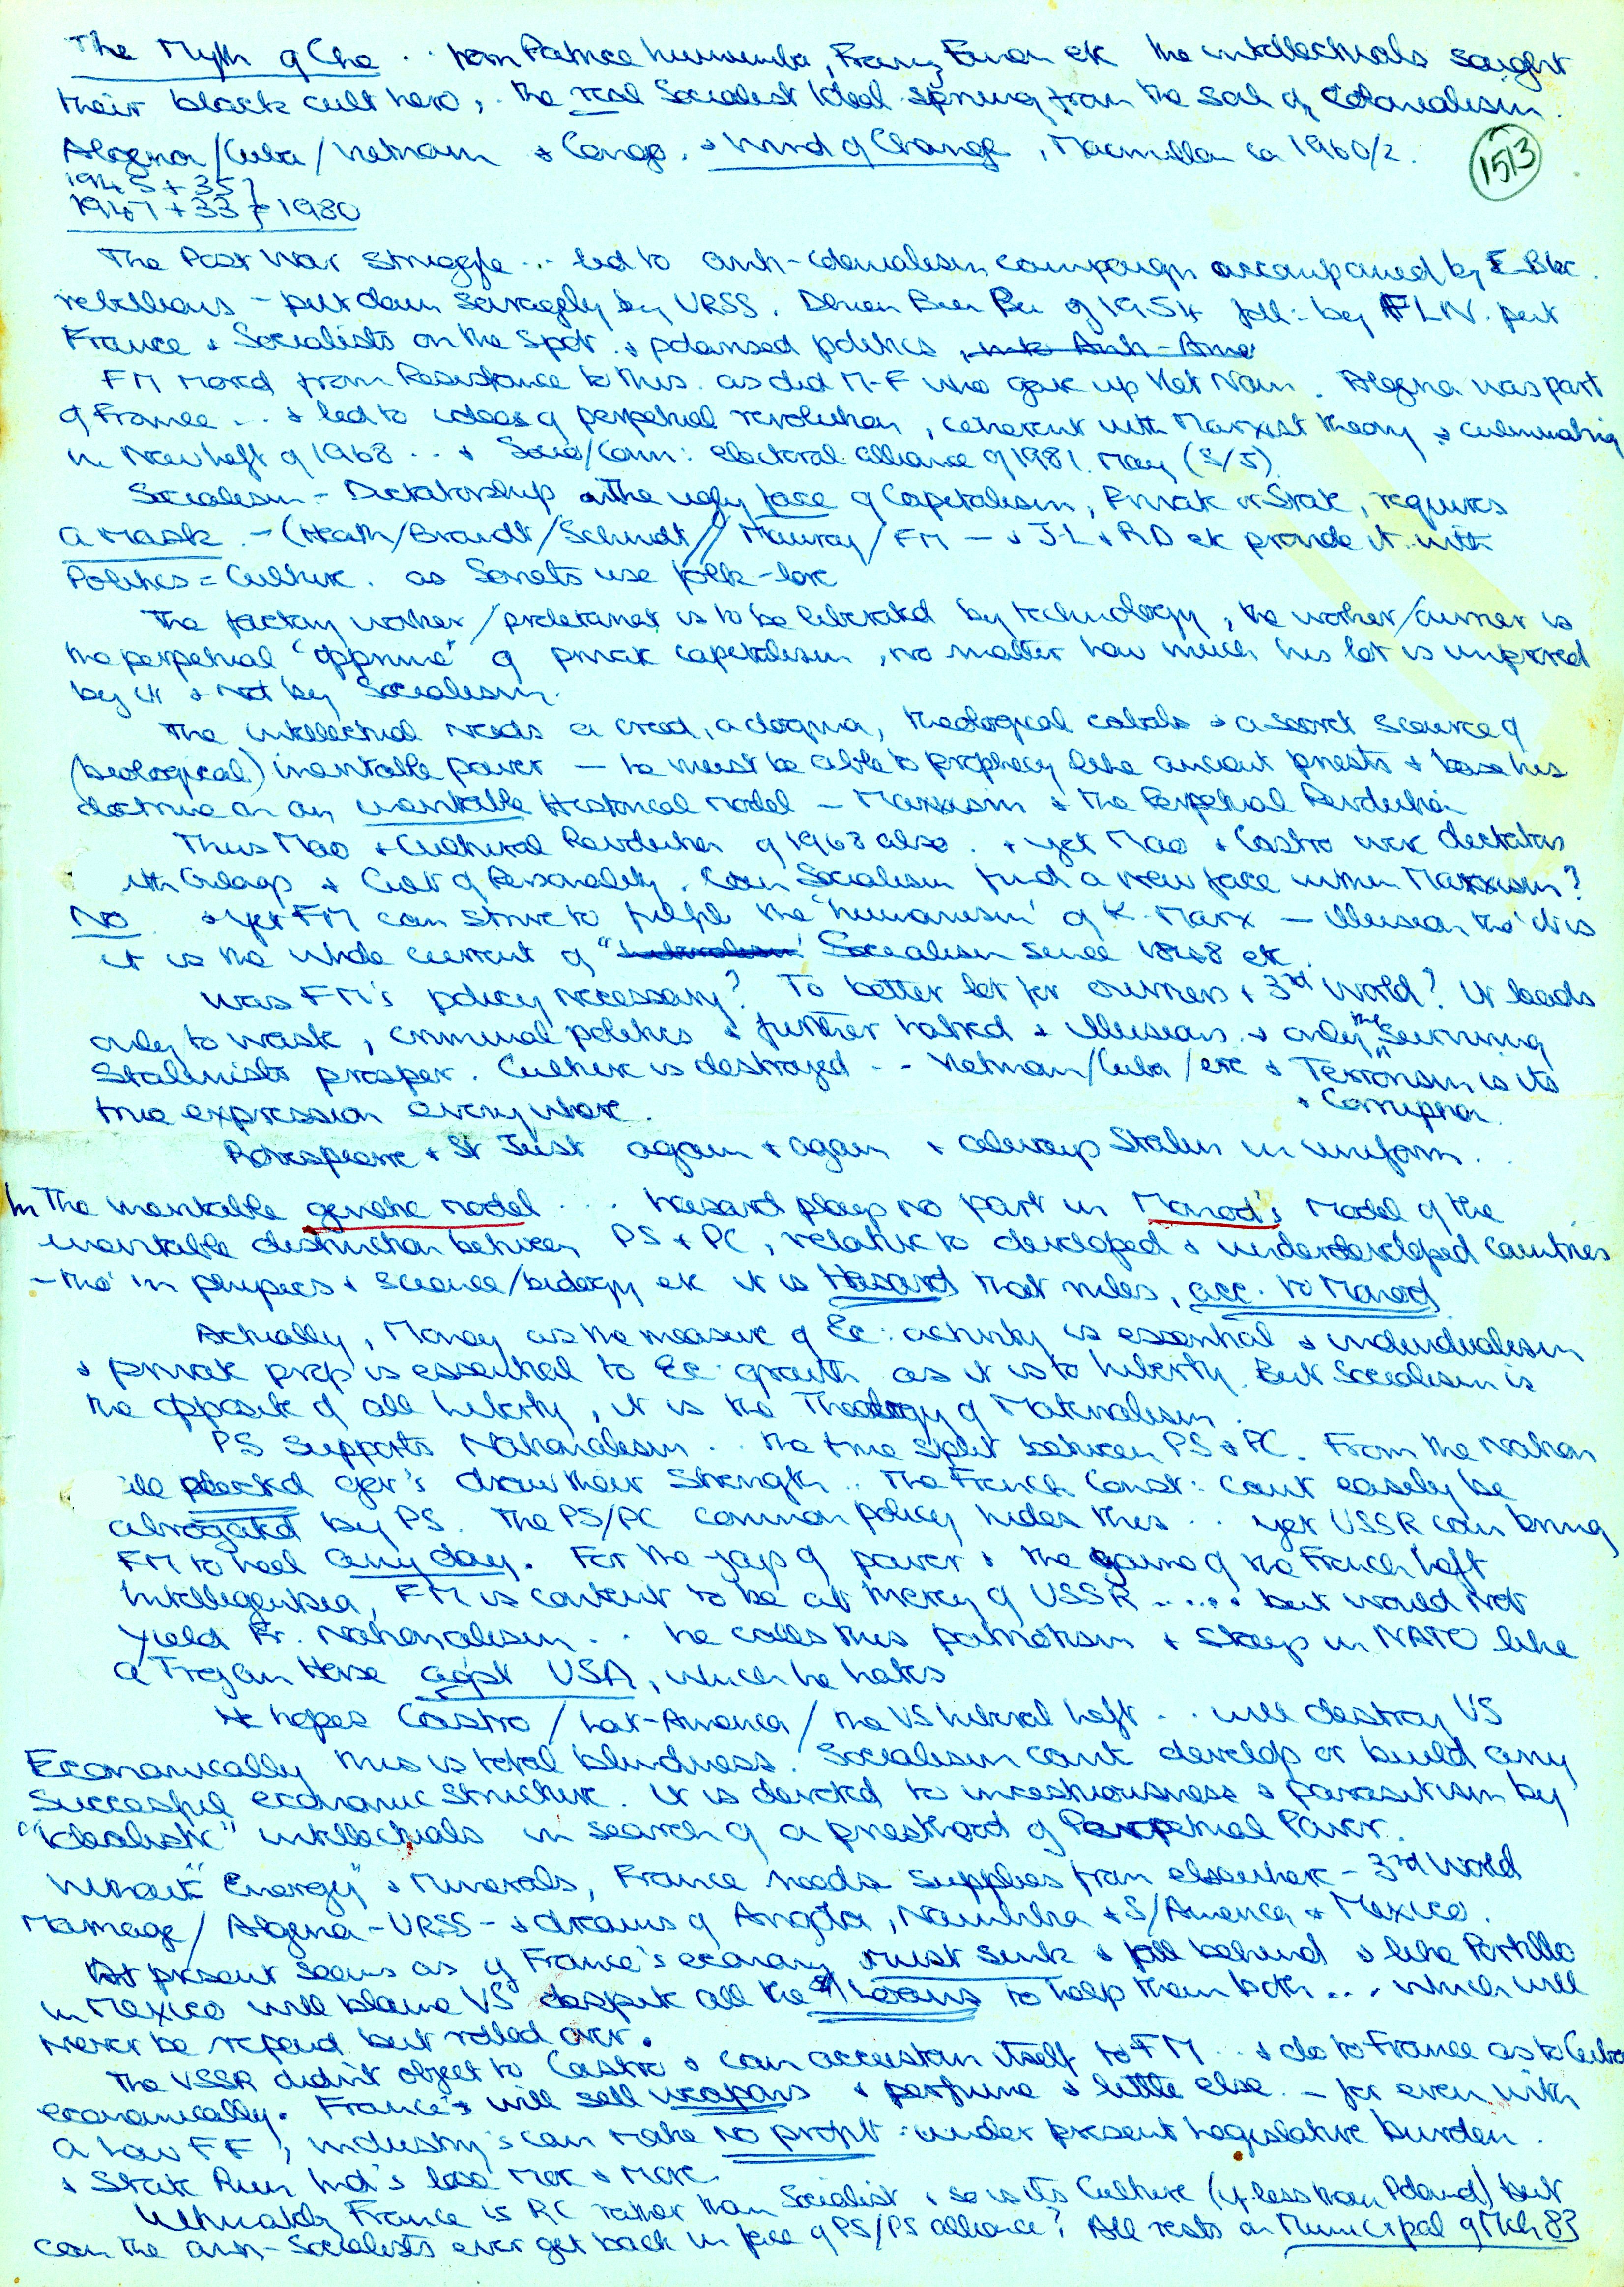 The Myth of Che . . from Patrice Lumumba, Franz Fanon etc the intellectuals sought
their black cult hero, . the real Socialist Ideal sprung from the soil of Colonialism.
Algeria/Cuba/Vietnam & Congo. & Wind of Change, Macmillan ca 1960/2.
1513
1945 + 35}
1947 + 33} - 1980
The Post War struggle . . led to anti-Colonialism campaign accompanied by E-Bloc
rebellions - put down savagely by URSS. Dhien Bien Phu of 1954 foll: by FLN. put
France & Socialists on the spot. & polarised politics,
FM moved from Resistance to this. as did M-F who gave up Viet Nam. Algeria was part
of France . . & led to ideas of perpetual revolution, coherent with Marxist theory & culminating
in New Left of 1968 . . & Socio/Comm: electoral alliance of 1981. May (3/5)
Socialism - Dictatorship on the ugly face of Capitalism, Private or State, requires
a mask. - (Heath/Brandt/Schmidt// Mauroy/FM - & J-L & RD etc provide it with
Politics = Culture. as Soviets use folk-lore
The factory worker/proletariat is to be liberated by technology, the worker/earner is
the perpetual 'opprimé' of private capitalism, no matter how much his lot is improved
by it & not by Socialism.
The intellectual needs a creed, a dogma, theological cabals & a secret source of
(biological) inevitable power - he must be able to prophecy like ancient priests & base his
doctrine on an inevitable Historical model - Marxism & the Perpetual Revolution
Thus Mao & Cultural Revolution of 1968 also. & yet Mao & Castro were dictators
with Gulags & Cult of Personality. Can Socialism find a new face within Marxism?
No & yet FM can strive to fulfil the 'humanism' of K. Marx - illusion tho' it is
it is the whole current of " Socialism since 1848 etc.
Was FM's policy necessary? To better lot for earners & 3rd World? It leads
only to waste, criminal politics & further hatred & illusions. & only the surviving
Stalinists prosper. Culture is destroyed . . Vietnam/Cuba/etc & "Terrorism is its
true expression everywhere. & Corruption.
Robespierre & St Just again & again & always Stalin in uniform. .
In The inevitable genetic model . . . hasard plays no part in Monod's model of the
inevitable distinction between PS & PC, relative to developed & underdeveloped countries
- tho' in physics & science/biology etc it is Hasard that rules, acc. to Monod
Actually, Money as the measure of Ec: activity is essential & individualism
& private prop is essential to Ec growth as it is to Liberty. But Socialism is
the opposite of all Liberty, it is the Theology of Materialism.
PS supports Nationalism . . the true split between PS & PC. From the Nation
ile elected gov's draw their strength . . The French Const: can't easily be
abrogated by PS. The PS/PC common policy hides this . . yet USSR can bring
FM to heel any day. For the joys of power & the game of the French Left
Intelligentsia, FM is content to be at mercy of USSR . . . . . but would not
yield Fr. Nationalism . . he calls this patriotism & stays in NATO like
a Trojan Horse agst USA, which he hates
He hopes Castro/Lat-America/the US liberal Left . . will destroy US
Economically this is total blindness. Socialism can't develop or build any
successful economic structure. It is devoted to incestuousness & parasitism by
"idealistic" intellectuals in search of a priesthood of Perpetual Power.
Without "Energy" & Minerals, France needs supplies from elsewhere - 3rd World
Marriage/Algeria-URSS- & dreams of Angola, Namibia & S/America & Mexico.
At present seems as if France's economy must sink & fall behind & like Portillo
in Mexico will blame US despite all the $ Loans to help them both . . . which will
never be repaid but rolled over.
The USSR didn't object to Castro & can accustom itself to FM . . & do to France as to Cuba
economically. France will sell weapons & perfume & little else. - for even with
a low FF, industry's can make no profit under present Legislative burden.
& State Run Ind's lose more & more.
Ultimately France is RC rather than Socialist & so is its Culture (if less than Poland) but
can the anti-Socialists ever get back in face of PS/PS alliance? All rests on Municipal of Mch 83